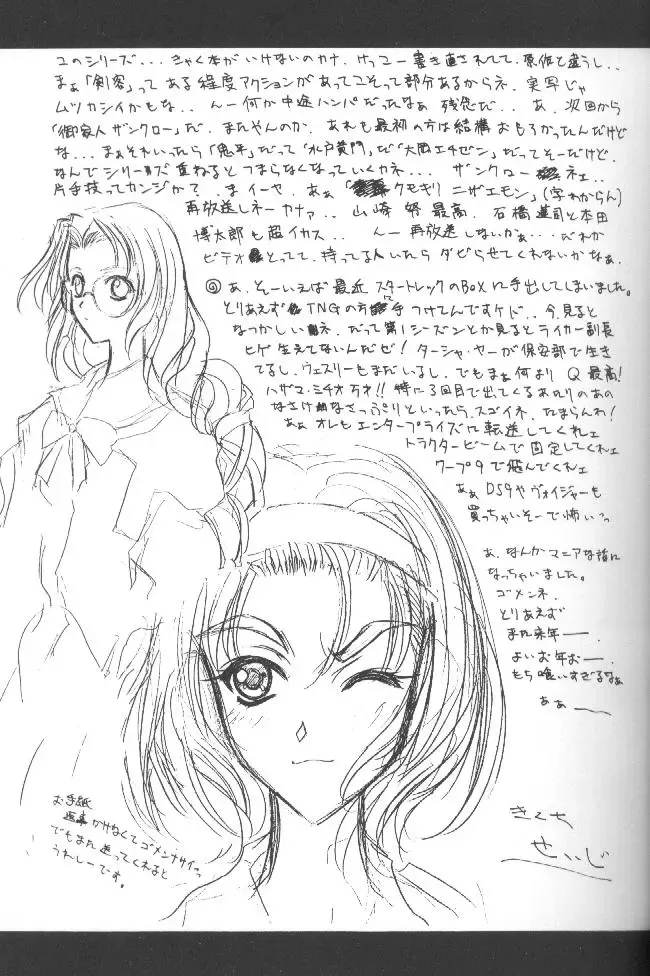 このシリーズ... きゃく本がいけないのカナ. けっこー書き直されてて. 原作と違うし..
まぁ「剣客」って ある程度アクションがあってこそって部分あるからネ. 実写じゃ
ムツカシイかもな.. んー何か中途ハンパだったなぁ 残念だ.. あ. 次回から
「御家人 ザンクロー」だ. またやんのか. あれも最初の方は結構 おもろかったんだけど
な... まぁそれいったら「鬼平」だって「水戸黄門」だ「大岡エチゼン」だってそーだけど.
なんでシリーズ重ねると つまらなくなっていくカネ... ザンクロー ネェ..
片手技ってカンジか?. ま イーや. あぁ「クモキリ ニザエモン」(字わからん)
再放送しネーカナァ.. 山崎努 最高. 石橋蓮司と本田
博太郎も超イカス.. んー 再放送しないかぁ... だれか
ビデオとってて. 持ってる人いたら ダビらせてくれないかなぁ.
◎ あ. そーいえば 最近 スタートレックのBOXに手出してしまいました.
とりあえず TNGの方に手つけてんですケド.. 今. 見ると
なつかしいネ. だって第1シーズンとか見るとライカー副長
ヒゲ 生えてないんだぜ! ターシャ・ヤーが保安部で生き
てるし. ウェスリーもまだいるし. でもまぁ何より Q 最高!
ハザマ・ミチオ 万才!! 特に3回目で出てくるあたりのあの
なさけなさっぷりといったら. スゴイネ. たまらんわ!
あぁ オレも エンタープライズに 転送してくれェ
トラクタービームで 固定してくれェ
ワープ9で 飛んでくれェ
あぁ DS9や ヴォイジャーも
買っちゃいそーで怖いっ
あ. なんかマニアな話に
なっちゃいました.
ゴメンネ.
とりあえず
また来年――.
よいお年お――.
もち喰いすぎるなぁ
あぁ――
お手紙
返事かけなくてゴメンナサイっ
でもまた送ってくれると
うれしーです.
きくち
せいじ